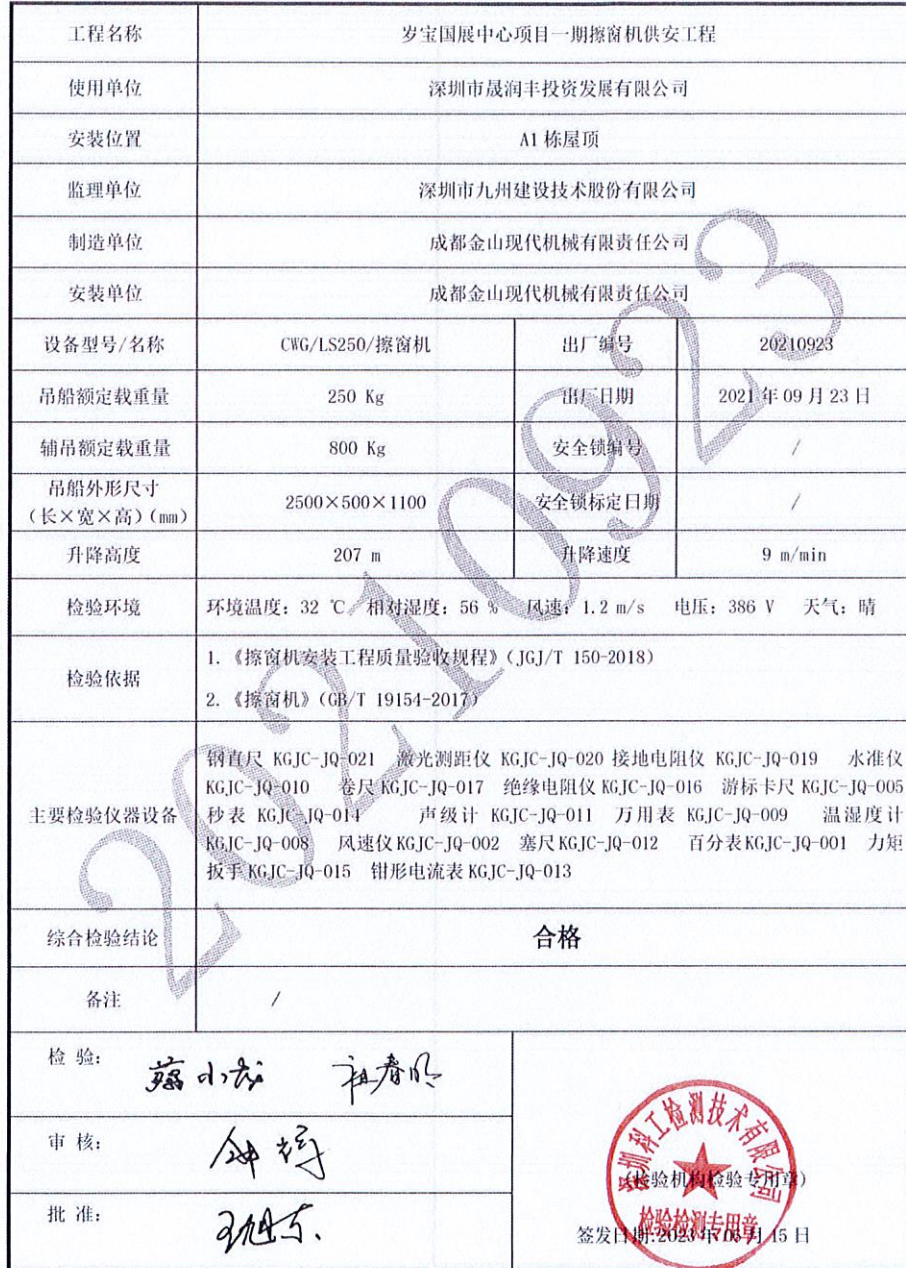 工程名称 岁宝国展中心项目一期擦窗机供安工程
使用单位 深圳市晟润丰投资发展有限公司
安装位置 A1 栋屋顶
监理单位 深圳市九州建设技术股份有限公司
制造单位 成都金山现代机械有限责任公司
安装单位 成都金山现代机械有限责任公司
设备型号/名称 CWG/LS250/擦窗机 出厂编号 20210923
吊船额定载重量 250 Kg 出厂日期 2021 年 09 月 23 日
辅吊额定载重量 800 Kg 安全锁编号 /
吊船外形尺寸
(长×宽×高)(mm) 2500×500×1100 安全锁标定日期 /
升降高度 207 m 升降速度 9 m/min
检验环境 环境温度: 32 ℃ 相对湿度: 56 % 风速: 1.2 m/s 电压: 386 V 天气: 晴
检验依据
1. 《擦窗机安装工程质量验收规程》(JGJ/T 150-2018)
2. 《擦窗机》(GB/T 19154-2017)
主要检验仪器设备
钢直尺 KGJC-JQ-021 激光测距仪 KGJC-JQ-020 接地电阻仪 KGJC-JQ-019 水准仪
KGJC-JQ-010 卷尺 KGJC-JQ-017 绝缘电阻仪 KGJC-JQ-016 游标卡尺 KGJC-JQ-005
秒表 KGJC-JQ-014 声级计 KGJC-JQ-011 万用表 KGJC-JQ-009 温湿度计
KGJC-JQ-008 风速仪 KGJC-JQ-002 塞尺 KGJC-JQ-012 百分表 KGJC-JQ-001 力矩
扳手 KGJC-JQ-015 钳形电流表 KGJC-JQ-013
综合检验结论 合格
备注 /
检 验:
审 核:
批 准:
深圳科工检测技术有限公司
(检验机构检验专用章)
检验检测专用章
签发日期:2023 年 06 月 15 日
20210923